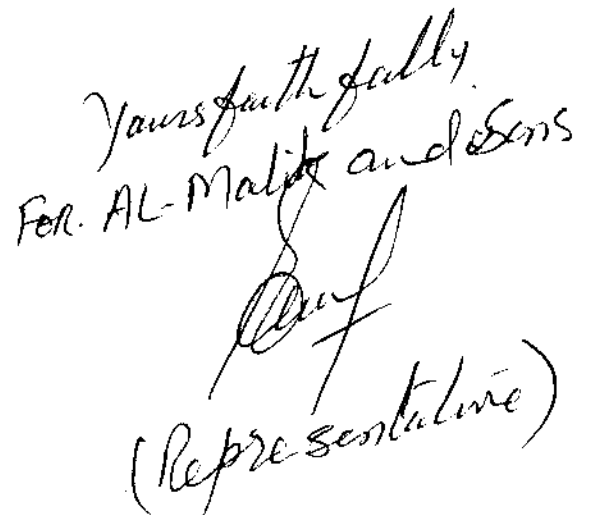 Yours faithfully
FOR. AL-Malik and Sons
(Representative)